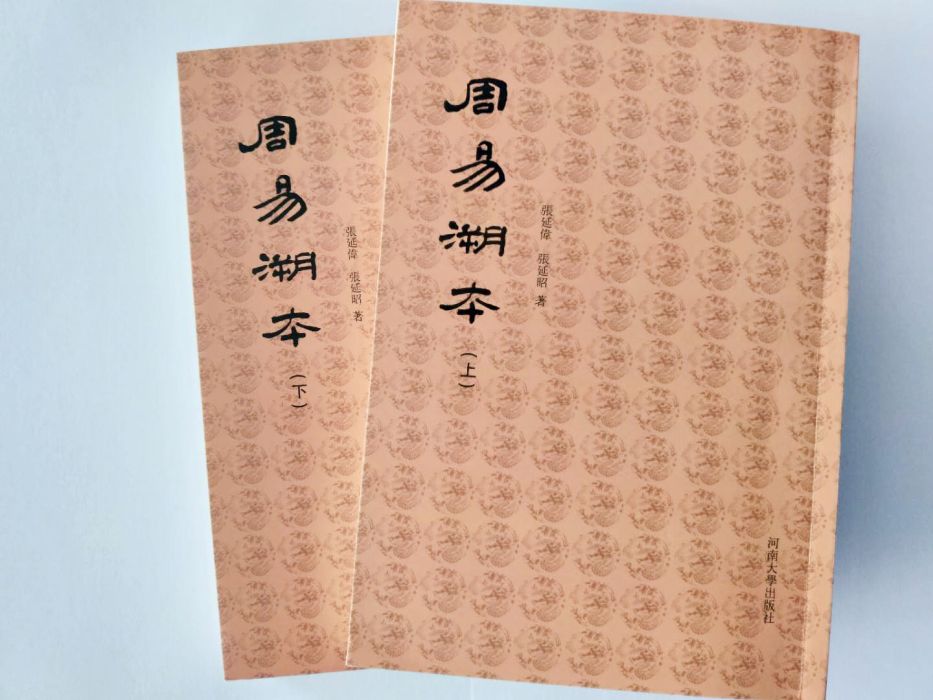 周易溯本(上)
張延偉 張延昭 著
河南大學出版社
周易溯本(下)
張延偉 張延昭 著